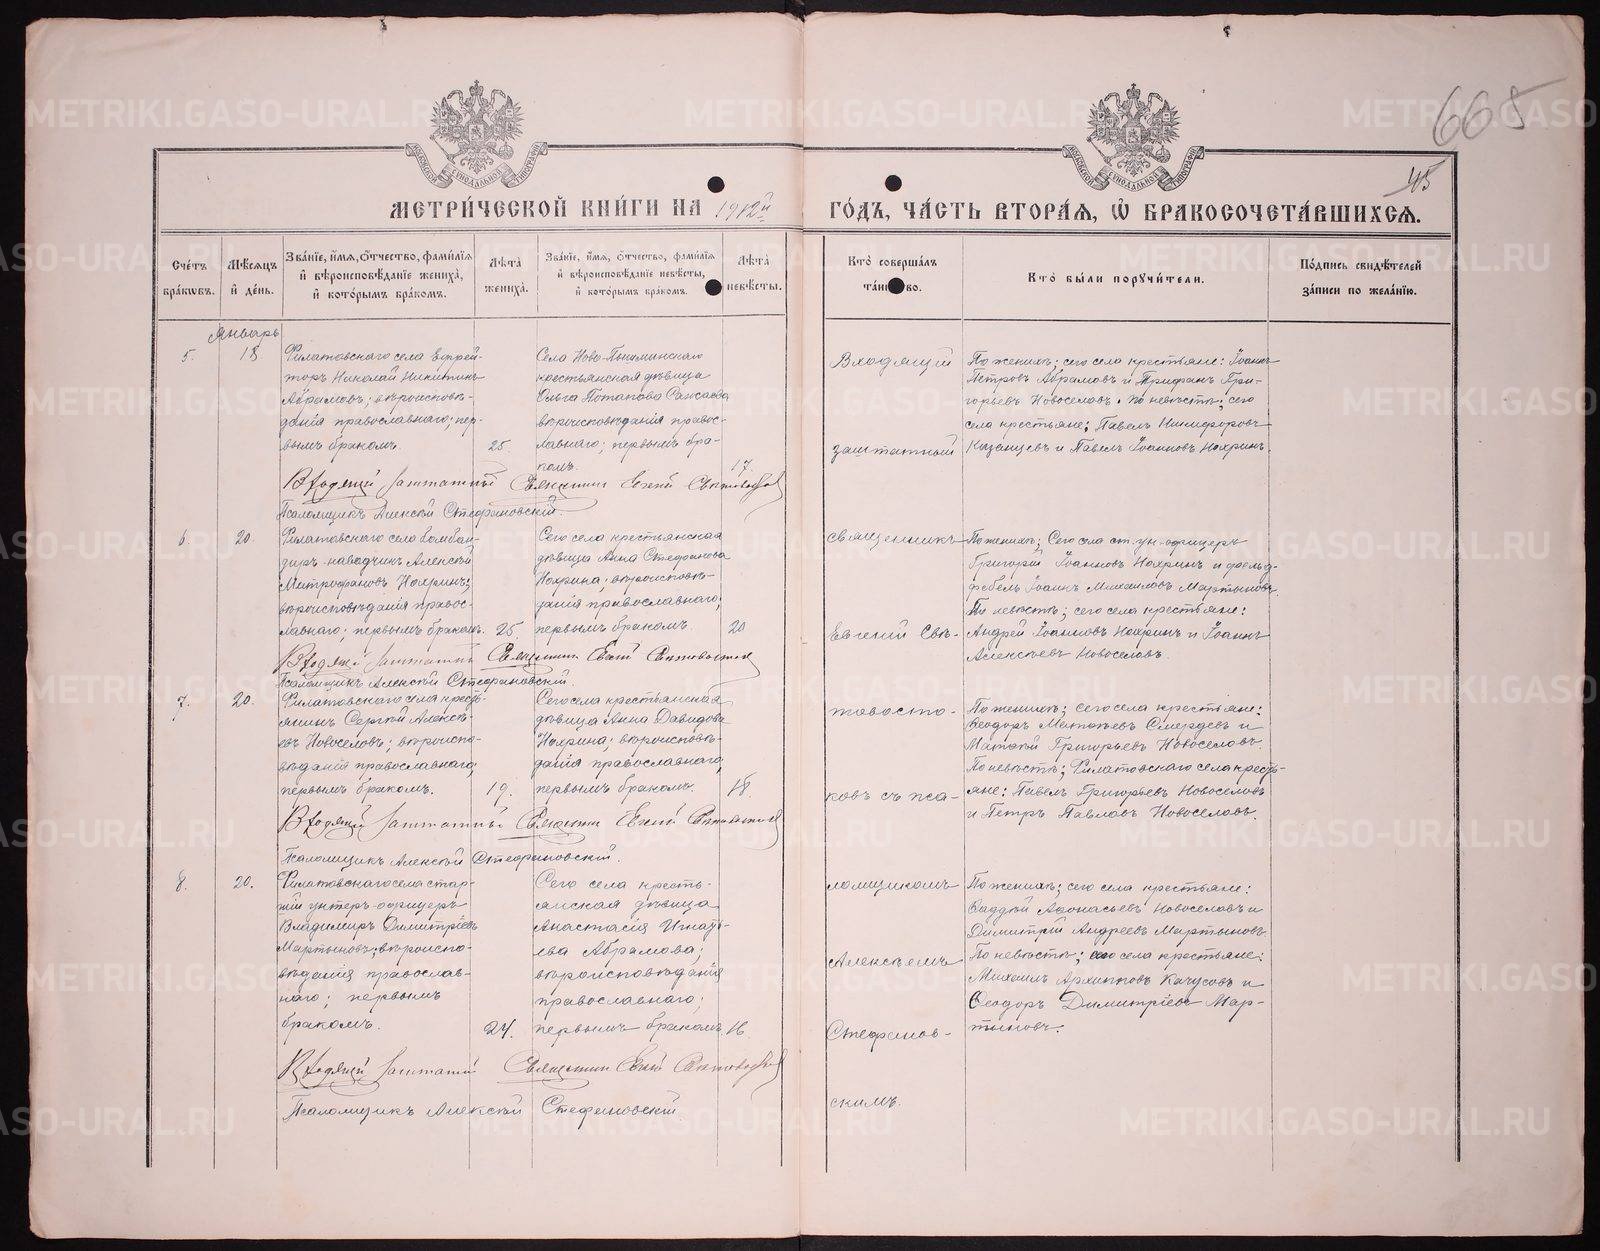 665
45
МОСКОВСКОЙ СѴНОДАЛЬНОЙ ТИПОГРАФІИ
МОСКОВСКОЙ СѴНОДАЛЬНОЙ ТИПОГРАФІИ
МЕТРИ́ЧЕСКОЙ КНИ́ГИ НА 1912й ГО́ДЪ, ЧА́СТЬ ВТОРА́Я, Ѽ БРАКОСОЧЕТА́ВШИХСЯ.
Сче́тъ бра́кѡвъ.
Мѣ́сяцъ и́ де́нь.
Зва́нїе, и́мя, ѻ́тчество, фами́лїя и́ вѣроисповѣ́данїе жениха̀, и́ кото́рымъ бра́комъ.
Лѣ́та̀ жениха̀.
Зва́нїе, и́мя, ѻ́тчество, фами́лїя и́ вѣроисповѣ́данїе невѣ́сты, и́ кото́рымъ бра́комъ.
Лѣ́та̀ невѣ́сты.
Кто̀ соверша́лъ та́инство.
Кто̀ бы́ли порꙋчи́тели.
По́дпись свидѣ́телей за́писи по жела́нїю.
Январь
5.
18
Филатовскаго села Ефрей-
торъ Николай Никитинъ
Абрамовъ; вѣроисповѣ-
данія православнаго; пер-
вымъ бракомъ.
25.
Села Ново-Пышминскаго
крестьянская дѣвица
Ольга Потапова
вѣроисповѣданія правос-
лавнаго; первымъ бра-
комъ.
17.
По женихѣ; сего села крестьяне: Іоаннъ
Петровъ Абрамовъ и Трифанъ Гри-
горьевъ Новоселовъ. По невѣстѣ; сего
села крестьяне; Павелъ Никифоровъ
Казанцевъ и Павелъ Іоанновъ Нохринъ.
Входящій заштатный Священникъ Евгеній Святовостоковъ
Псаломщикъ Алексѣй Стефановскій.
6.
20.
Филатовскаго села бомбан-
диръ-наводчикъ Алексѣй
Митрофановъ Нохринъ;
вѣроисповѣданія правос-
лавнаго; первымъ бракомъ.
25.
Сего села крестьянская
дѣвица Анна Стефанова
Нохрина; вѣроисповѣ-
данія православнаго;
первымъ бракомъ.
20
По женихѣ; Сего села ст. ун.-офицеръ
Григорій Іоанновъ Нохринъ и фельд-
фебель Іоаннъ Михаиловъ Мартыновъ.
По невѣстѣ; сего села крестьяне:
Андрей Іоанновъ Нохринъ и Іоаннъ
Алексѣевъ Новоселовъ.
Входящій заштатный Священникъ Евгеній Святовостоковъ
Псаломщикъ Алексѣй Стефановскій.
7.
20.
Филатовскаго села кресть-
янинъ Сергѣй Алексѣ-
евъ Новоселовъ; вѣроиспо-
вѣданія православнаго;
первымъ бракомъ.
19.
Сего села крестьянская
дѣвица Анна Давидова
Нохрина; вѣроисповѣ-
данія православнаго;
первымъ бракомъ.
18.
По женихѣ; сего села крестьяне:
Ѳеодоръ Матвѣевъ Смердевъ и
Матѳій Григорьевъ Новоселовъ.
По невѣстѣ; Филатовскаго села кресть-
яне: Павелъ Григорьевъ Новоселовъ
и Петръ Павловъ Новоселовъ.
Входящій заштатный Священникъ Евгеній Святовостоковъ
Псаломщикъ Алексѣй Стефановскій.
8.
20.
Филатовскаго села стар-
шій унтеръ-офицеръ
Владимиръ Димитріевъ
Мартыновъ; вѣроиспо-
вѣданія православ-
наго; первымъ
бракомъ.
24.
Сего села кресть-
янская дѣвица
Анастасія Игнать-
ева Абрамова;
вѣроисповѣданія
православнаго;
первымъ бракомъ.
16
По женихѣ; сего села крестьяне:
Ѳаддѣй Аѳонасьевъ Новоселовъ и
Димитрій Андреевъ Мартыновъ
По невѣстѣ; сего села крестьяне:
Михаилъ Архиповъ Качусовъ и
Ѳеодоръ Димитріевъ Мар-
тыновъ.
Входящій заштатный Священникъ Евгеній Святовостоковъ
Псаломщикъ Алексѣй Стефановскій
Входящій
заштатный
священникъ
Евгеній Свя-
товосто-
ковъ съ пса-
ломщикомъ
Алексѣемъ
Стефанов-
скимъ.
METRIKI.GASO-URAL.RU